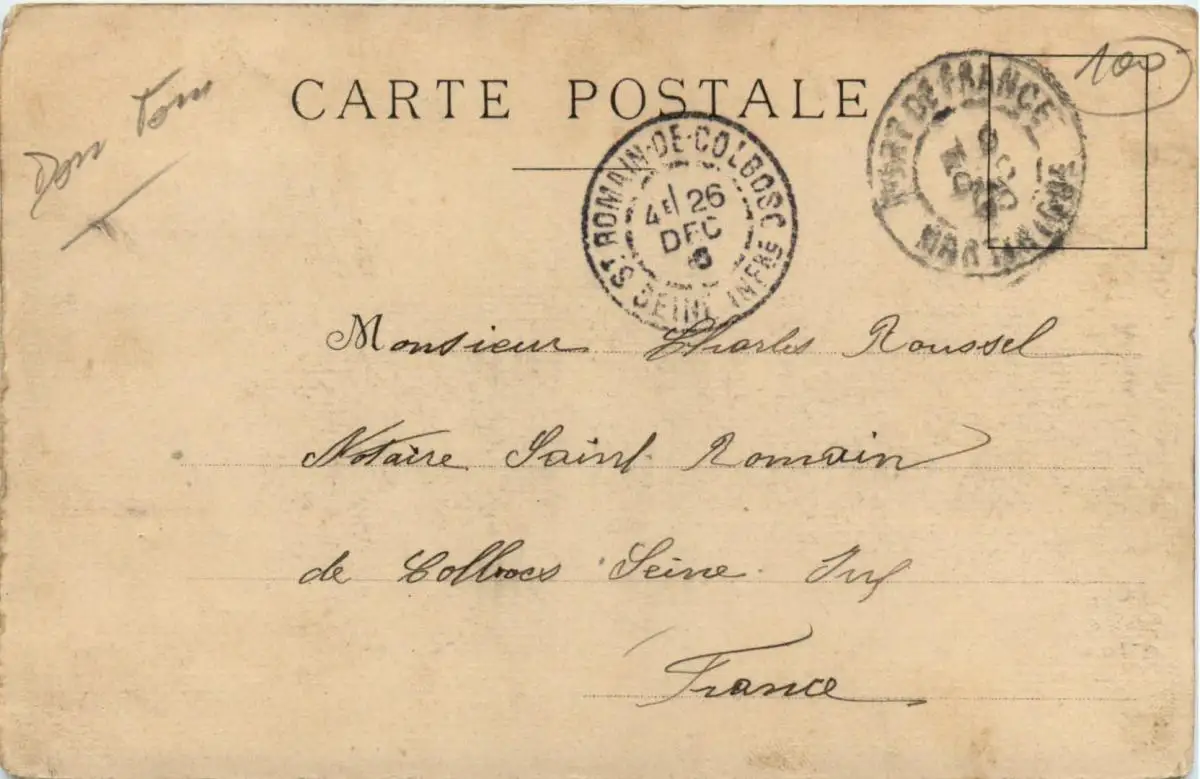 CARTE POSTALE
100
Dom Tom
FORT DE FRANCE
MARTINIQUE
ST ROMAIN-DE-COLBOSC
4E 26
DEC
SEINE INFRE
Monsieur Charles Roussel
Notaire Saint Romain
de Colbocs Seine Inf
France